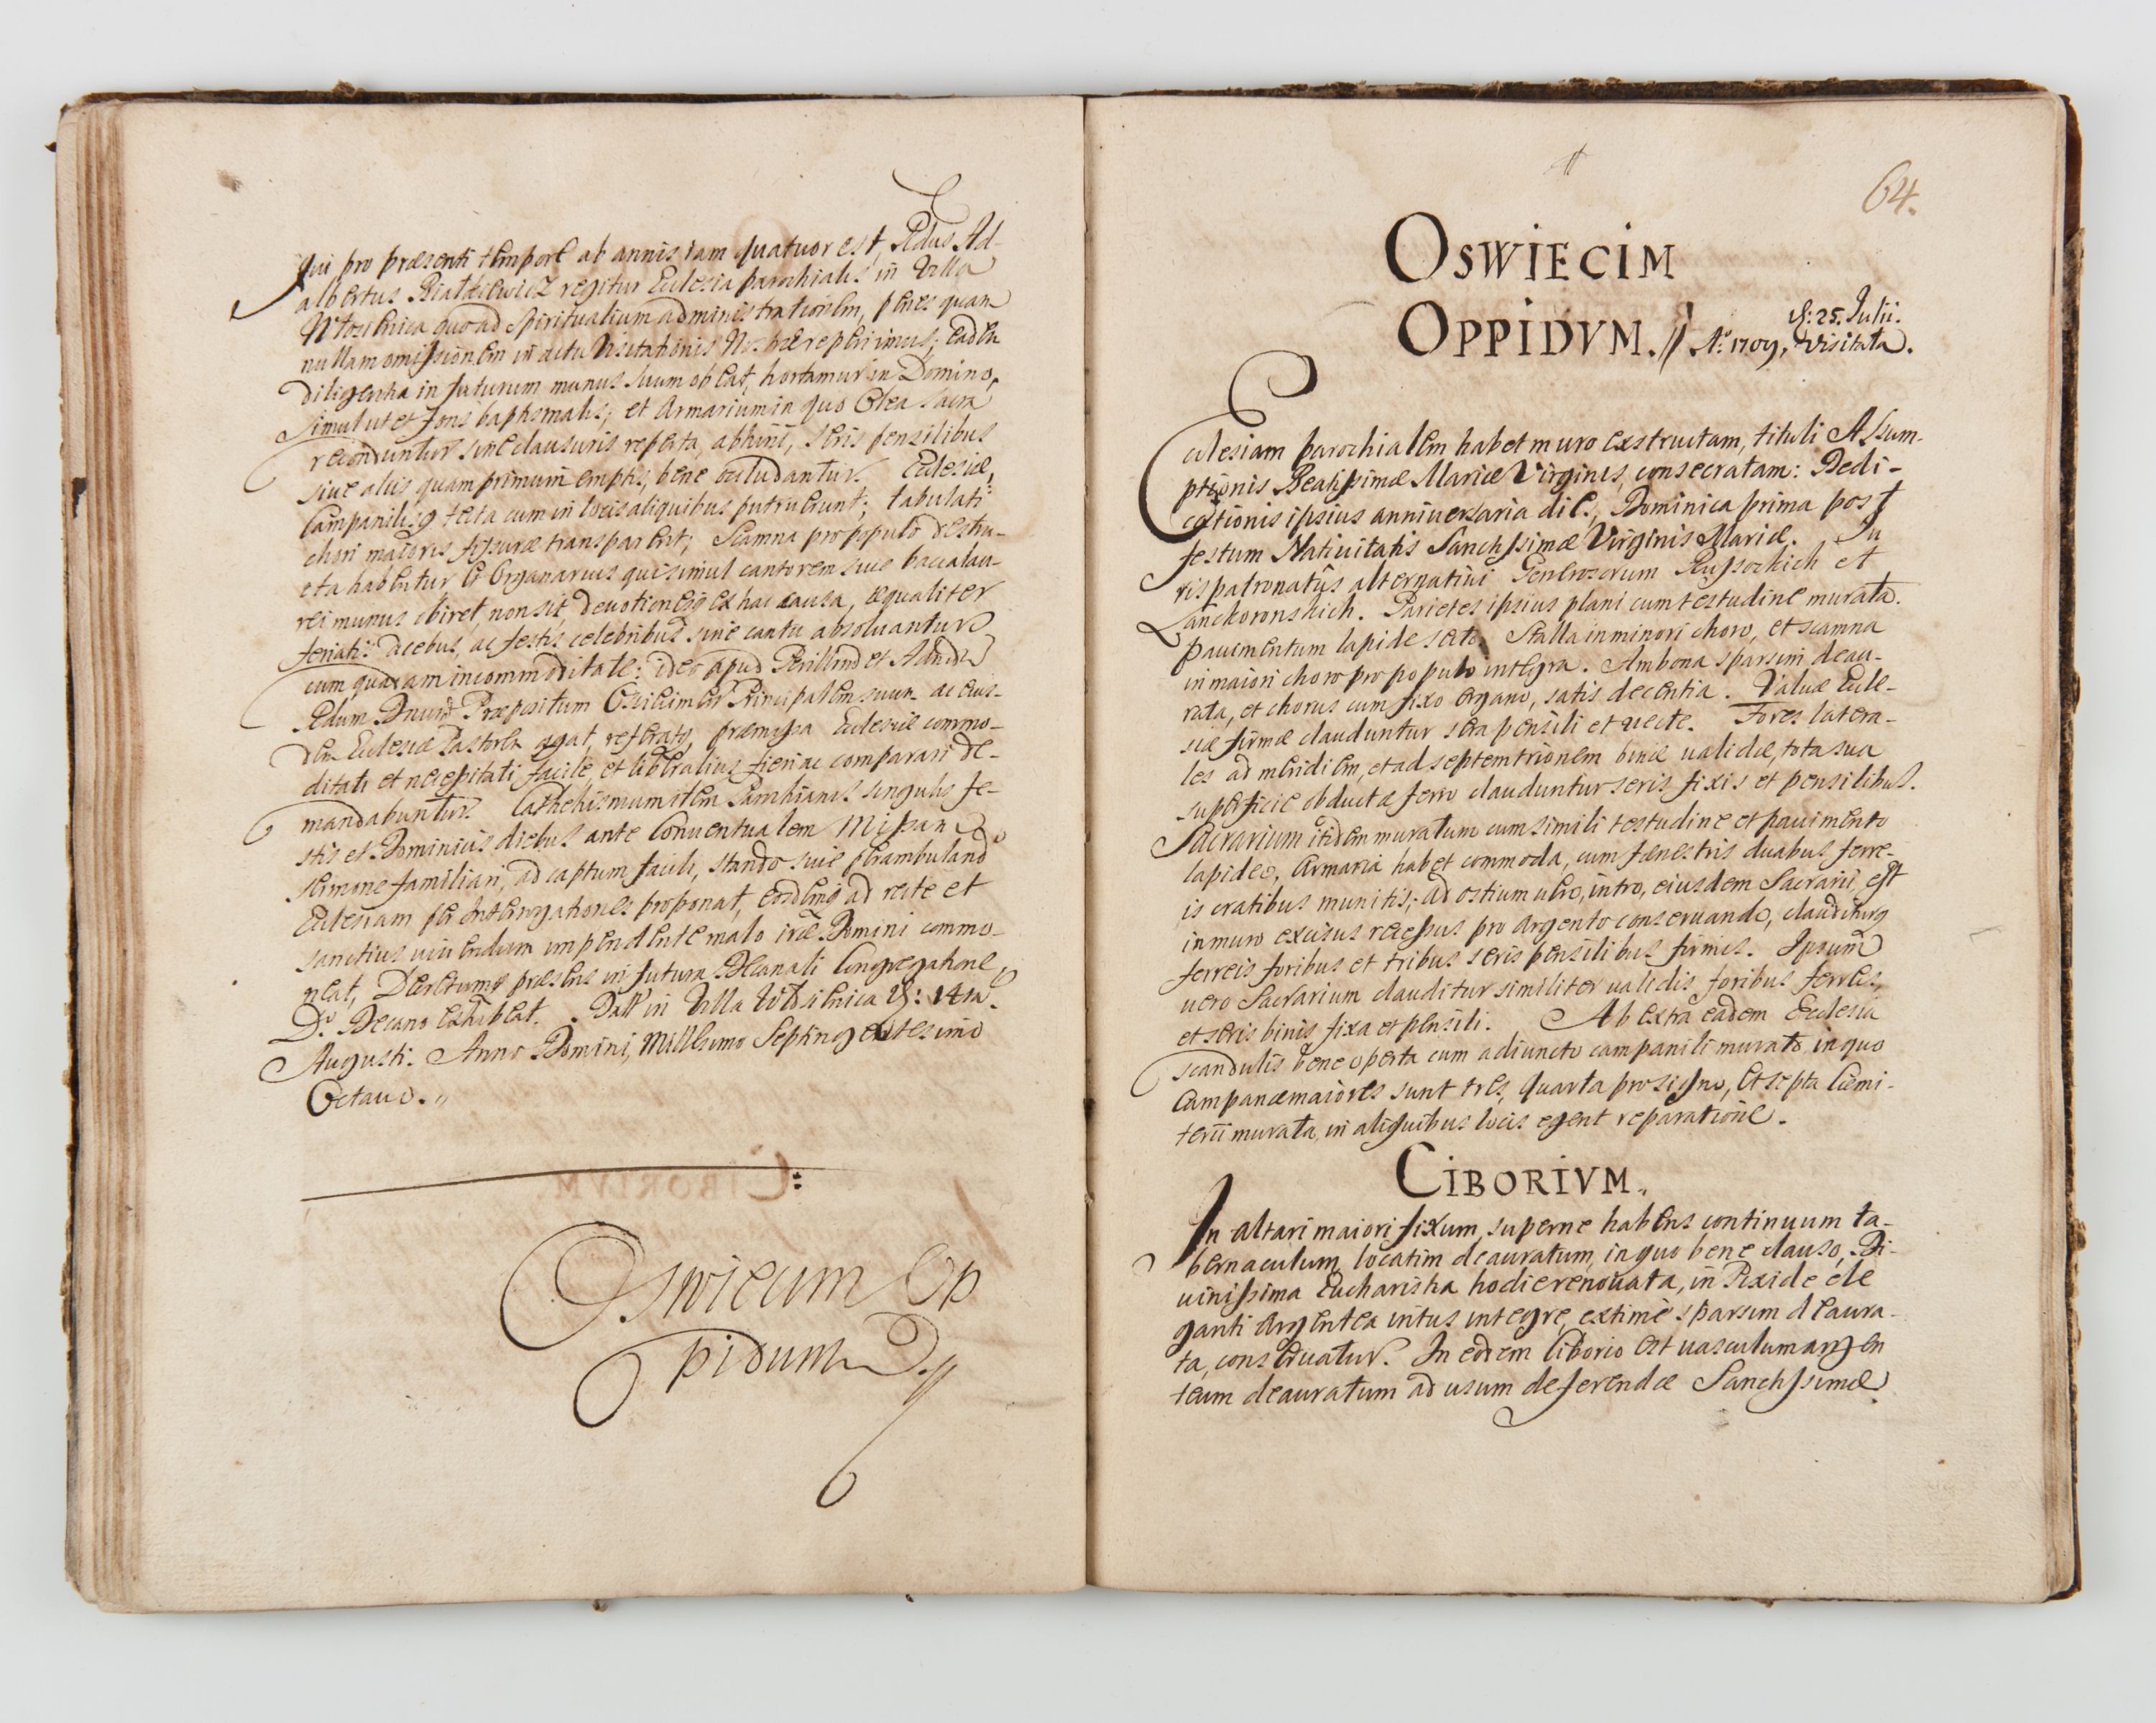 qui pro præsenti tempore ab annis iam quatuor est, Rdus Ad-
albertus Białkiewicz regitur Eclesia parochialis in Villa
Włosienica quoad Spiritualium administrationem, penes quam
nullam omissionem in actu Visitationis Nræ reperimus; eadem
diligentia in futurum munus suum obeat, hortamur in Domino,
simul ut et fons baptismalis, et armarium in quo Olea sacra
reconduntur sine clausuris reperta, abhinc, seris pensilibus
siue alijs quam primum emptis, bene occludantur. Eclesiæ,
Campanilisq tecta cum in locis aliquibus putruerunt; tabulati
chori maioris fissuræ transparent; Scamna pro populo destru-
cta habentur et Organarius qui simul cantorem siue baccalau-
rei munus obiret, non sit, deuotionesq ex hac causa, æqualiter
feriatis diebus, ac festis celebribus sine cantu absoluantur
cum quadam incommoditate: ideo apud Perillrem et Admdu
Rdum Dnum Præpositum Osuiecimen Principalem suum ac eius-
dem Eclesiæ Pastorem agat, referatq, præmissa Eclesiæ commo-
ditati et necessitati, facile, et liberalius fieri ac comparari de-
mandabuntur. Cathehismum item Parochianis singulis fe-
stis et Dominicis diebus ante Conuentualem Missam
sermone familiari, ad captum facili, stando siue perambulando
Eclesiam per interrogationes proponat, eosdemq ad recte et
sanctius uiuendum impendente malo iræ Domini commo-
neat, Decretumq præsens in futura Decanali Congregatione,
Do Decano exhibeat. Datt in Villa Włosienica D: 14ta.
Augusti. Anno Domini, Millesimo Septingentesimo
Octauo.
Oswiecim Op
pidum
64.
OSWIECIM
OPPIDVM. // Ao: 1709, D: 25. Julii. Visitata.
Eclesiam parochialem habet muro exstructam, tituli Assum-
ptionis Beatissimæ Mariæ Virginis, consecratam: Dedi-
cationis ipsius anniuersaria dies, Dominica prima post
festum Natiuitatis Sanctissimæ Virginis Mariæ. Iu
ris patronatûs alternatiui Generosorum Russockich et
Lanckoronskich. Parietes ipsius plani cum testudine murata.
pauimentum lapide sato. Stalla in minori choro, et scamna
in maiori choro pro populo integra. Ambona sparsim deau-
rata, et chorus cum fixo organo, satis decentia. Valuæ Ecle-
siæ firmæ clauduntur sera pensili et uecte. Fores latera-
les ad meridiem, et ad septemtrionem binæ ualidæ, tota sua
superficie obductæ ferro clauduntur seris fixis et pensilibus.
Sacrarium itidem muratum cum simili testudine et pauimento
lapideo, Armaria habet commoda, cum fenestris duabus ferre-
is cratibus munitis; ad ostium uero, intro, eiusdem Sacrarii, est
in muro excisus recessus pro Argento conseruando, clauditurq
ferreis foribus et tribus seris pensilibus firmis. Ipsum
uero Sacrarium clauditur similiter ualidis foribus ferreis,
et seris binis fixa et pensili. Ab extra eadem Ecclesia
scandulis bene operta cum adiuncto campanili murato in quo
Campanæ maiores sunt tres, quarta pro signo, et septa Cæmi-
terii murata, in aliquibus locis egent reparatione.
CIBORIVM.
In altari maiori fixum, superne habens continuum ta-
bernaculum locatim deauratum, in quo bene clauso, Di-
uinissima Eucharistia hodie renouata, in Pixide ele
ganti argentea intus integre, extimè sparsim deaura-
ta, conseruatur. In eodem Ciborio est uasculum argen
teum deauratum ad usum deferendæ Sanctissimæ